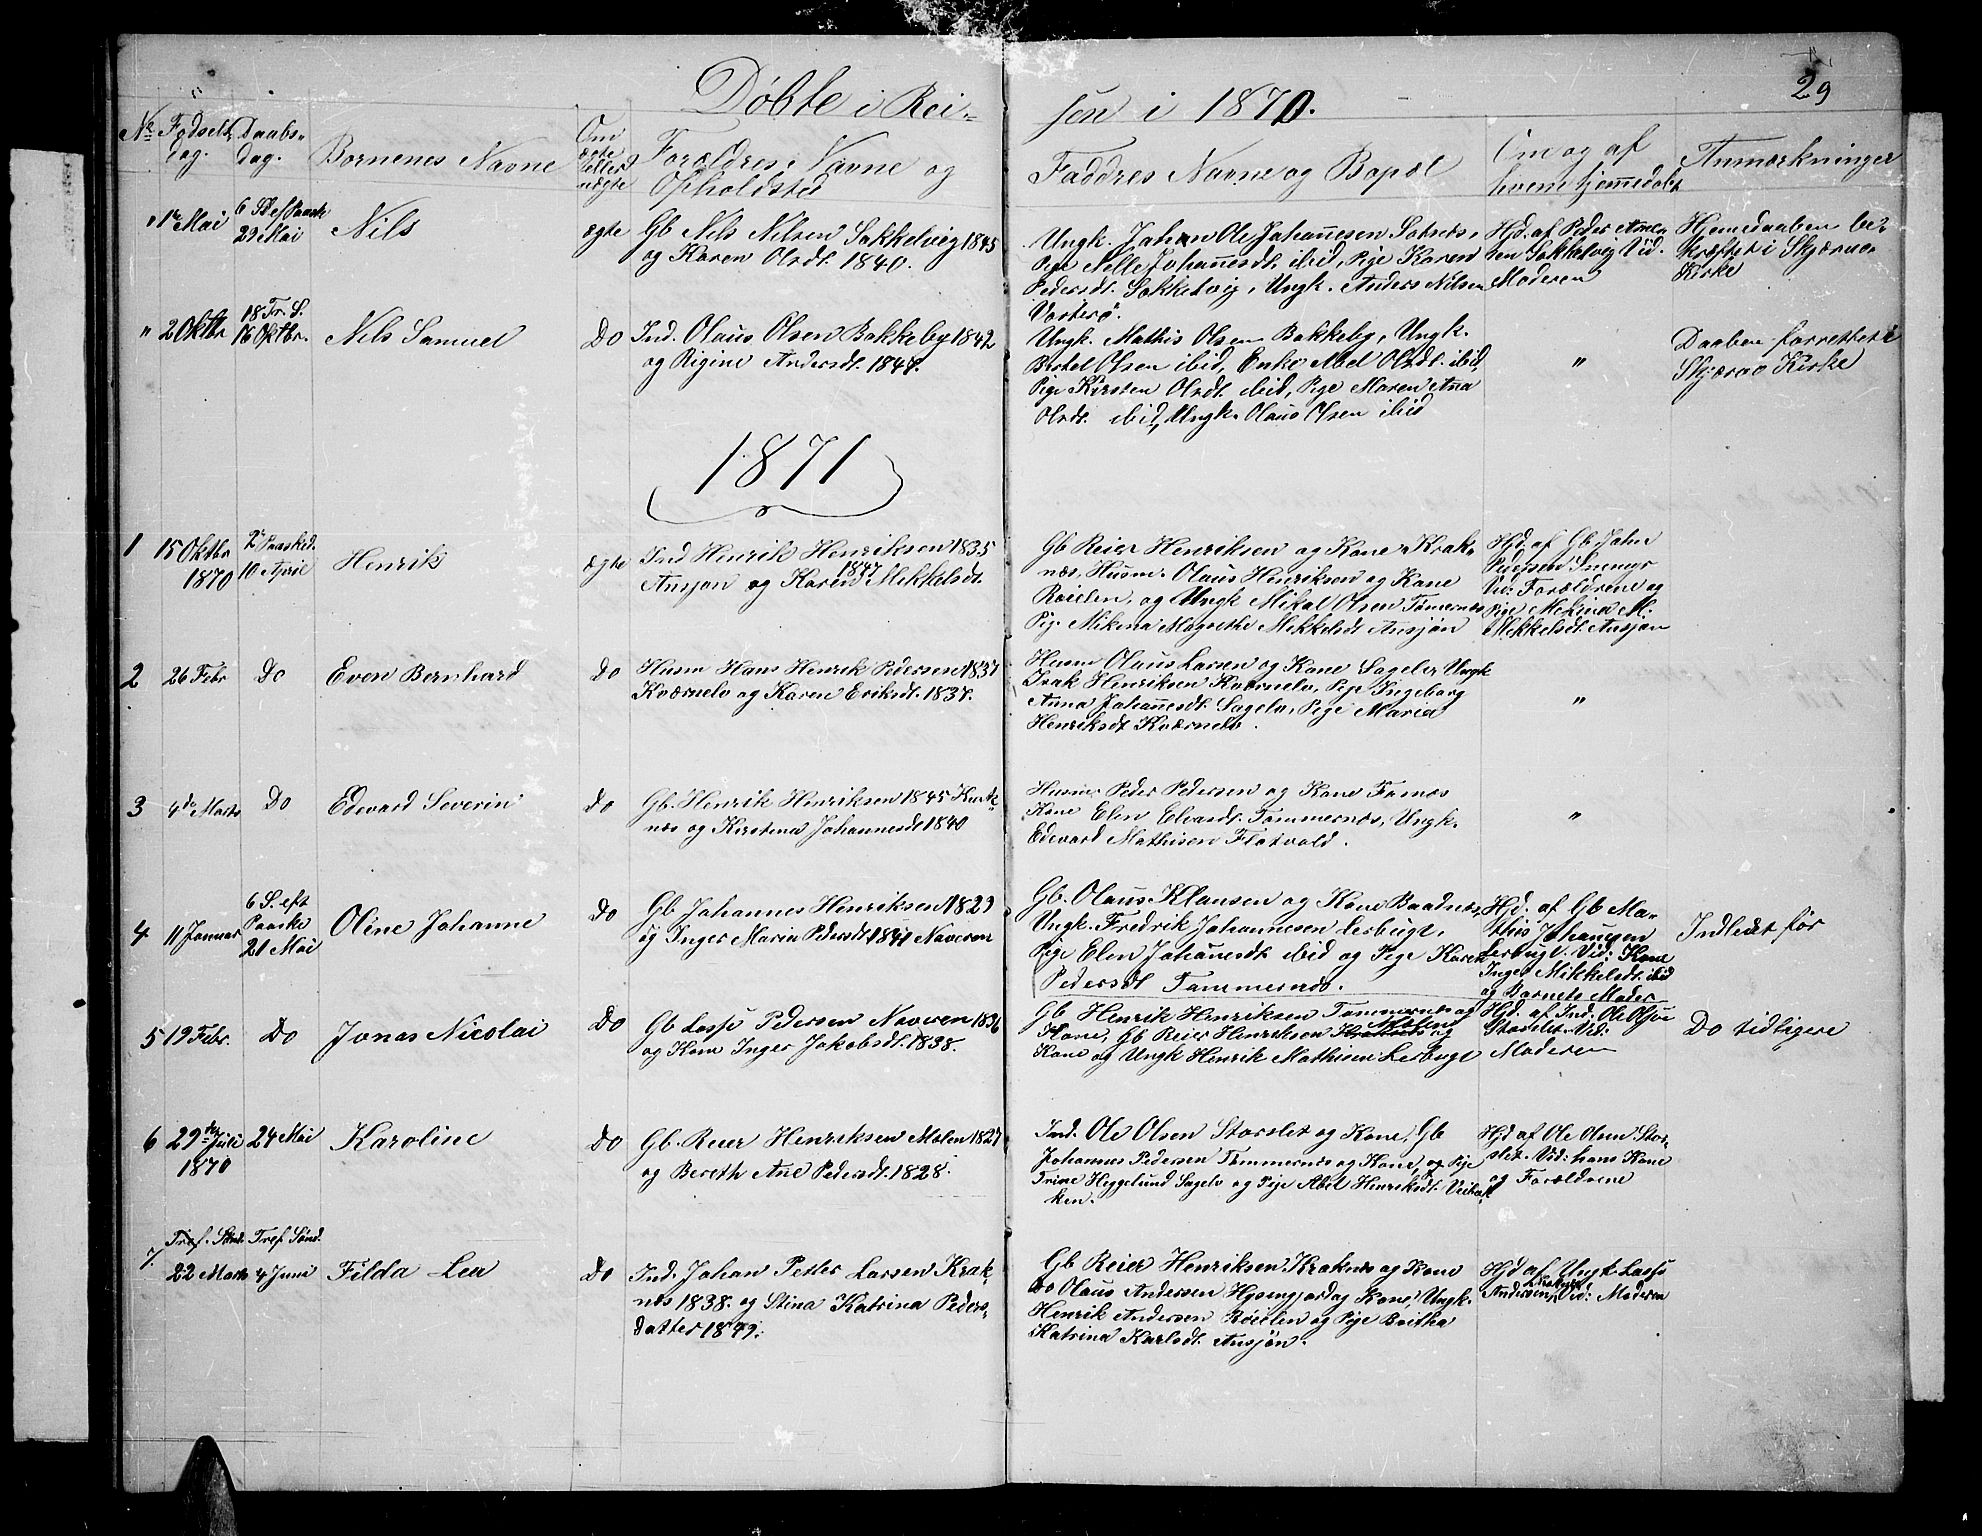 29
Døbte i Rei=
sen i 1870.
No Fødsels Daabs-
dag. dag. Børnenes Navne
Om ægte eller uægte
Forældres Navne og
Opholdsted
Faddres Navne og Bopæl
Om og af
hvem hjemmedøbt
Anmærkninger
" 1te Mai
6 S. ef Paaske
29 Mai
Nils
ægte
Gb Nils Nilsen Sokkelvig 1845
og Karen Olsdt. 1840.
Ungk. Johan Ole Johannesen
Pige Nelle Johannesdt. ibid, Pige Karen
Pedersdt. Sokkelvig, Ungk. Anders Nilsen
Vorterø.
Hjd. af Peder
Sokkelvig Vid.
Moderen
Hjemdaaben be=
kræftet i Skjærvø
Kirke
" 2 Oktbr
18 Tr. S.
16 Oktbr.
Nils Samuel
Do
Ind. Olaus Olsen Bakkeby 1842
og Rigine Andersdt. 1847.
Ungk. Mathis Olsen Bakkeby, Ungk.
Bertel Olsen ibid, Enke Abel Olsdt. ibid,
Pige Kirsten Olsdt. ibid, Pige Maren Ana
Olsdt. ibid, Ungk. Olaus Olsen ibid
"
Daaben forrettet i
Skjærvø Kirke
1871
1 15 Oktbr
1870
2. Paasked.
10 April
Henrik
ægte
Ind Henrik Henriksen 1835
Ansjøn og Karen 1847 Mikkelsdt.
Gb Reier Henriksen og Kone Krak-
næs, Husm. Olaus Henriksen og Kone
Røielen, og Ungk Mikal Olsen Tømernæs
Pig. Mikena Magrethe Mikkelsdt Ansjøn
Hjd. af Gb John
Pedersen Snemyr
Vid: Forældrene og
Pige Mekina M.
Mikkelsdt. Ansjøn
2 26 Febr
Do
Even Bernhard
Do
Husm Hans Henrik Pedersen 1837
Kværnelv og Karen Eriksdt. 1837.
Husm Olaus Larsen og Kone Sagelv Ungk
Isak Henriksen Kværnelv, Pige Ingeborg
Anna Johannesdt. Sagelv, Pige Maria
Henriksdt Kværnelv.
"
3 4de Marts
Do
Edevard Severin
Do
Gb. Henrik Henriksen 1845
næs og Kirstina Johannesdt 1840
Husm Peder Pedersen og Kone
Kone Elen Elvardt. Tømmernæs, Ungk.
Edevard Mathisen Flatvold.
"
4 11 Januar
6 S. eft
Paaske
21 Mai
Oline Johanne
Do
Gb Johannes Henriksen 1829
og Inger Maria Pedersdt 1841 Naveren
Gb. Olaus Klausen og Kone Baadnæs,
Ungk. Fredrik Johannesen Lerbugt.
Pige Elen Johanesdt. ibid og Pige Karen
Pedersdt Tømmernæs.
Hjd. af Gb Ma-
this Johansen
Lerbugt. Vid: Kone
Inger Mikkelsdt. ibid
og Barnets Moder
Indledet før
5 19 Febr.
Do
Jonas Nicolai
Do
Gb Lasse Pedersen Naveren 1836
og Kone Inger Jakobsdt. 1838.
Gb Henrik Henriksen Tømmernæs og
Kone, Gb Reier Henriksen Kraknæs Molen og
Kone og Ungk Henrik Mathisen Lerbugt
Hjd. af Ind. Ole Olsen
Storslet. Vid:
Moderen
Do tidligere
6 29de Juli
1870
24 Mai
Karoline
Do
Gb. Reier Henriksen Molen 1827
og Bereth Ane Pedersdt. 1828.
Ind. Ole Olsen Storslet og Kone, Gb
Johannes Pedersen Tømmernæs og Kone, og Pige
Trine Heggelund Sagelv og Pige Abel Henriksdt. Veibak
ken.
Hjd af Ole Olsen Stor-
slet. Vid: hans Kone
og Forældrene
7.
Tref. Sönd. Tref. Sönd.
22 Marts 4 Juni
Filda Lea
Do
Ind. Johan Petter Larsen Krak-
næs 1838. og Stina Katrina Peders-
datter 1849.
Gb Reier Henriksen Kraknæs og Kone
Do Olaus Andersen Hysingjord og Kone, Ungk.
Henrik Andersen Røielen og Pige Beitha
Katrina Karlsdt. Ansjøn.
Hjd af Ungk Lasse
Andersen, Kraknæs Vid: Moderen